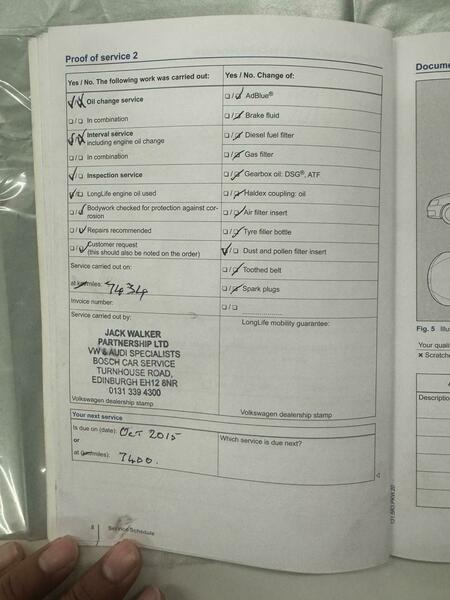 Proof of service 2
Yes / No. The following work was carried out:
Yes / No. Change of:
Oil change service
AdBlue®
In combination
Brake fluid
Interval service
including engine oil change
Diesel fuel filter
In combination
Gas filter
Inspection service
Gearbox oil: DSG®, ATF
LongLife engine oil used
Haldex coupling: oil
Bodywork checked for protection against cor-
rosion
Air filter insert
Repairs recommended
Tyre filler bottle
Customer request
(this should also be noted on the order)
Dust and pollen filter insert
Service carried out on:
Toothed belt
at km/miles: 7434
Spark plugs
Invoice number:
Service carried out by:
LongLife mobility guarantee:
JACK WALKER
PARTNERSHIP LTD
VW & AUDI SPECIALISTS
BOSCH CAR SERVICE
TURNHOUSE ROAD,
EDINBURGH EH12 8NR
0131 339 4300
Volkswagen dealership stamp
Volkswagen dealership stamp
Your next service
Is due on (date): Oct 2015
Which service is due next?
or
at (km/miles): 7400.
8 Service Schedule
Docume
Fig. 5 Illus
Your quali
× Scratche
A
Description